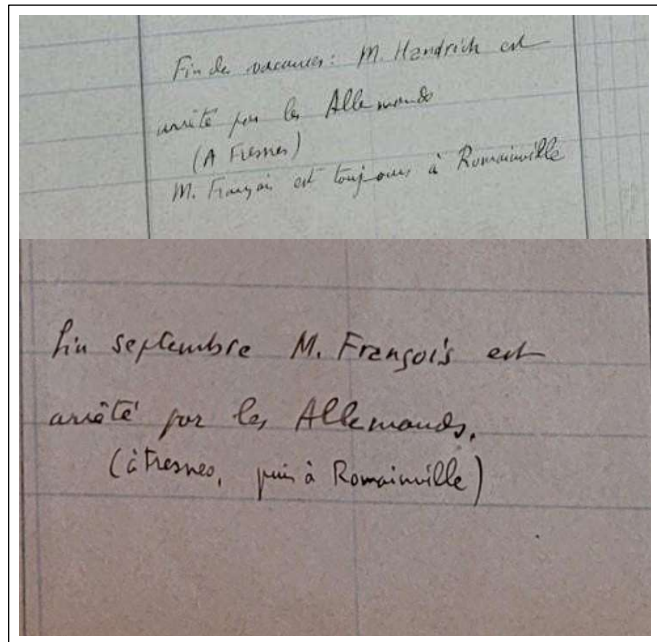 Fin des vacances: M. Handrich est
arrêté par les Allemands
(A Fresnes)
M. François est toujours à Romainville
Fin septembre M. François est
arrêté par les Allemands.
(à Fresnes, puis à Romainville)